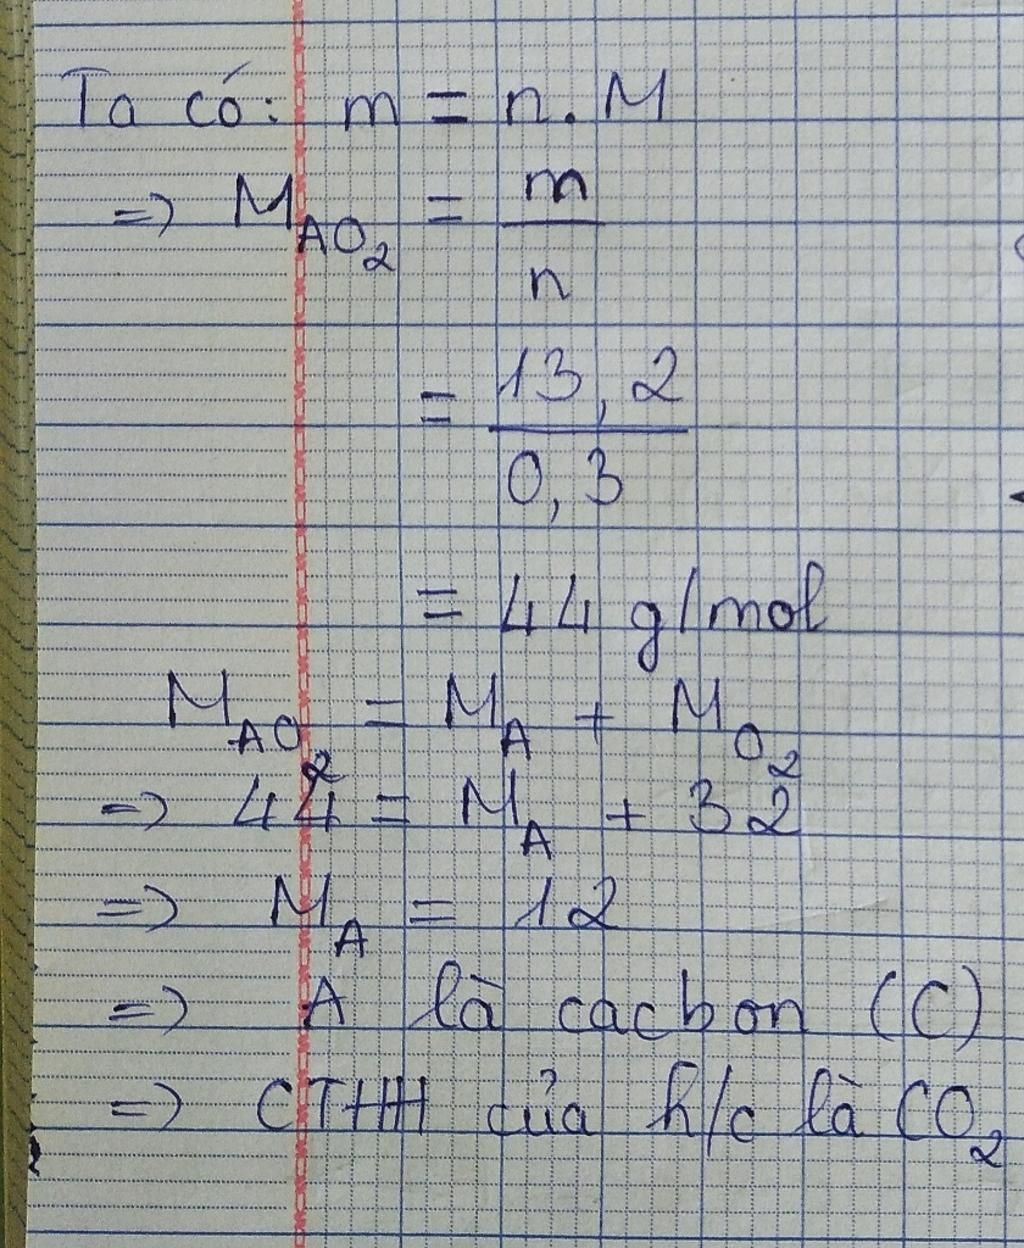 Ta có: m = n. M
=> M_AO₂ = m/n
= 13,2/0,3
= 44 g/mol
M_AO₂ = M_A + M_O₂
=> 44 = M_A + 32
=> M_A = 12
=> A là cacbon (C)
=> CTHH của h/c là CO₂